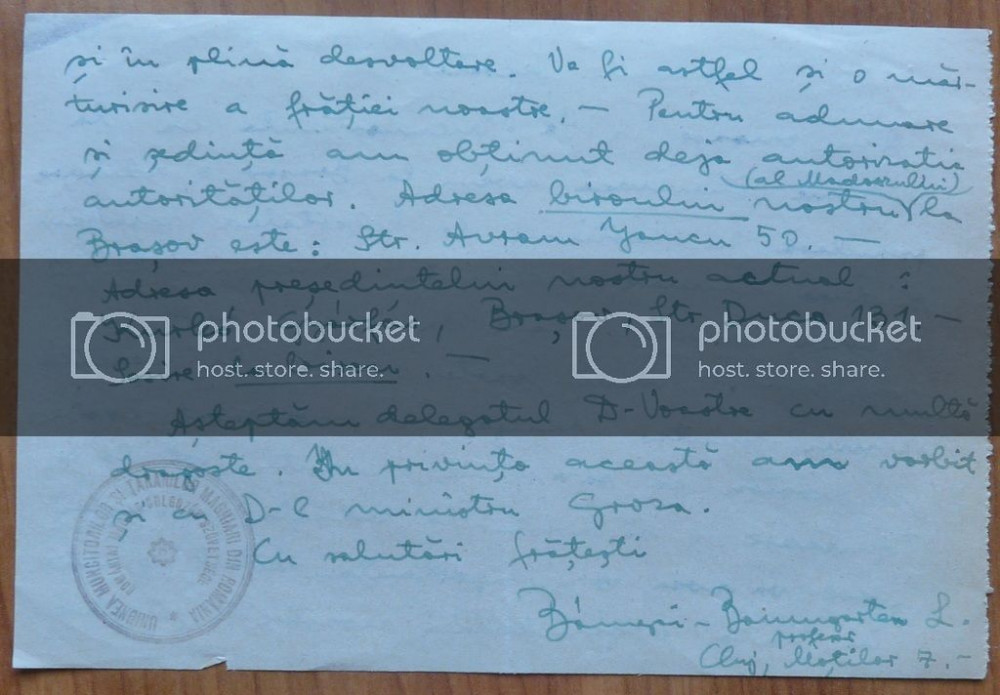 și în plină desvoltare. Va fi astfel și o măr-
turisire a frăției noastre. — Pentru adunare
și ședință am obținut deja autorizația
(al Madoszului)
autorităților. Adresa biroului nostru la
Brașov este: Str. Avram Yancu 50. —
Adresa președintelui nostru actual:
Brașov Str. Duca 131 —
Așteptăm delegatul D-Voastre cu multă
dragoste. In privința această am vorbit
și cu D-l ministru Groza.
Cu salutări frățești
Bányai-Baumgarten L.
profesor
Cluj, Moților 7. -
UNIUNEA MUNCITORILOR ȘI ȚĂRANILOR MAGHIARI DIN ROMÂNIA
photobucket
host. store. share.
photobucket
host. store. share.